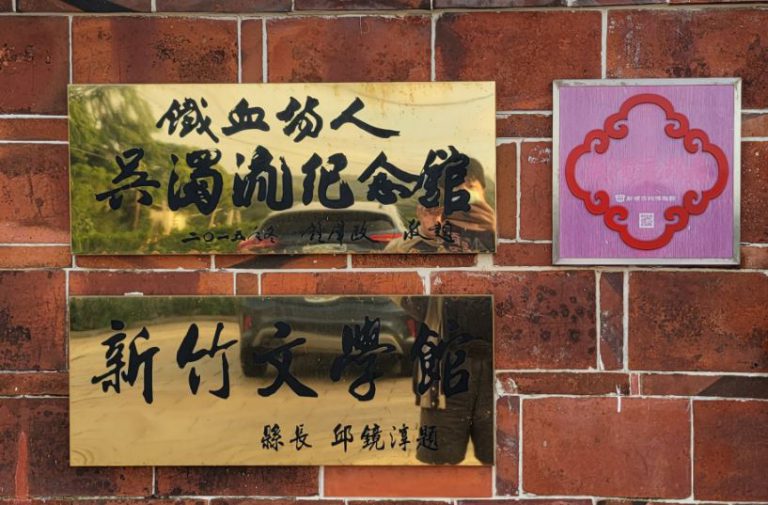 鐵血詩人
吳濁流紀念館
二〇一五冬 鍾肇政 敬題
新竹文學館
縣長 邱鏡淳題